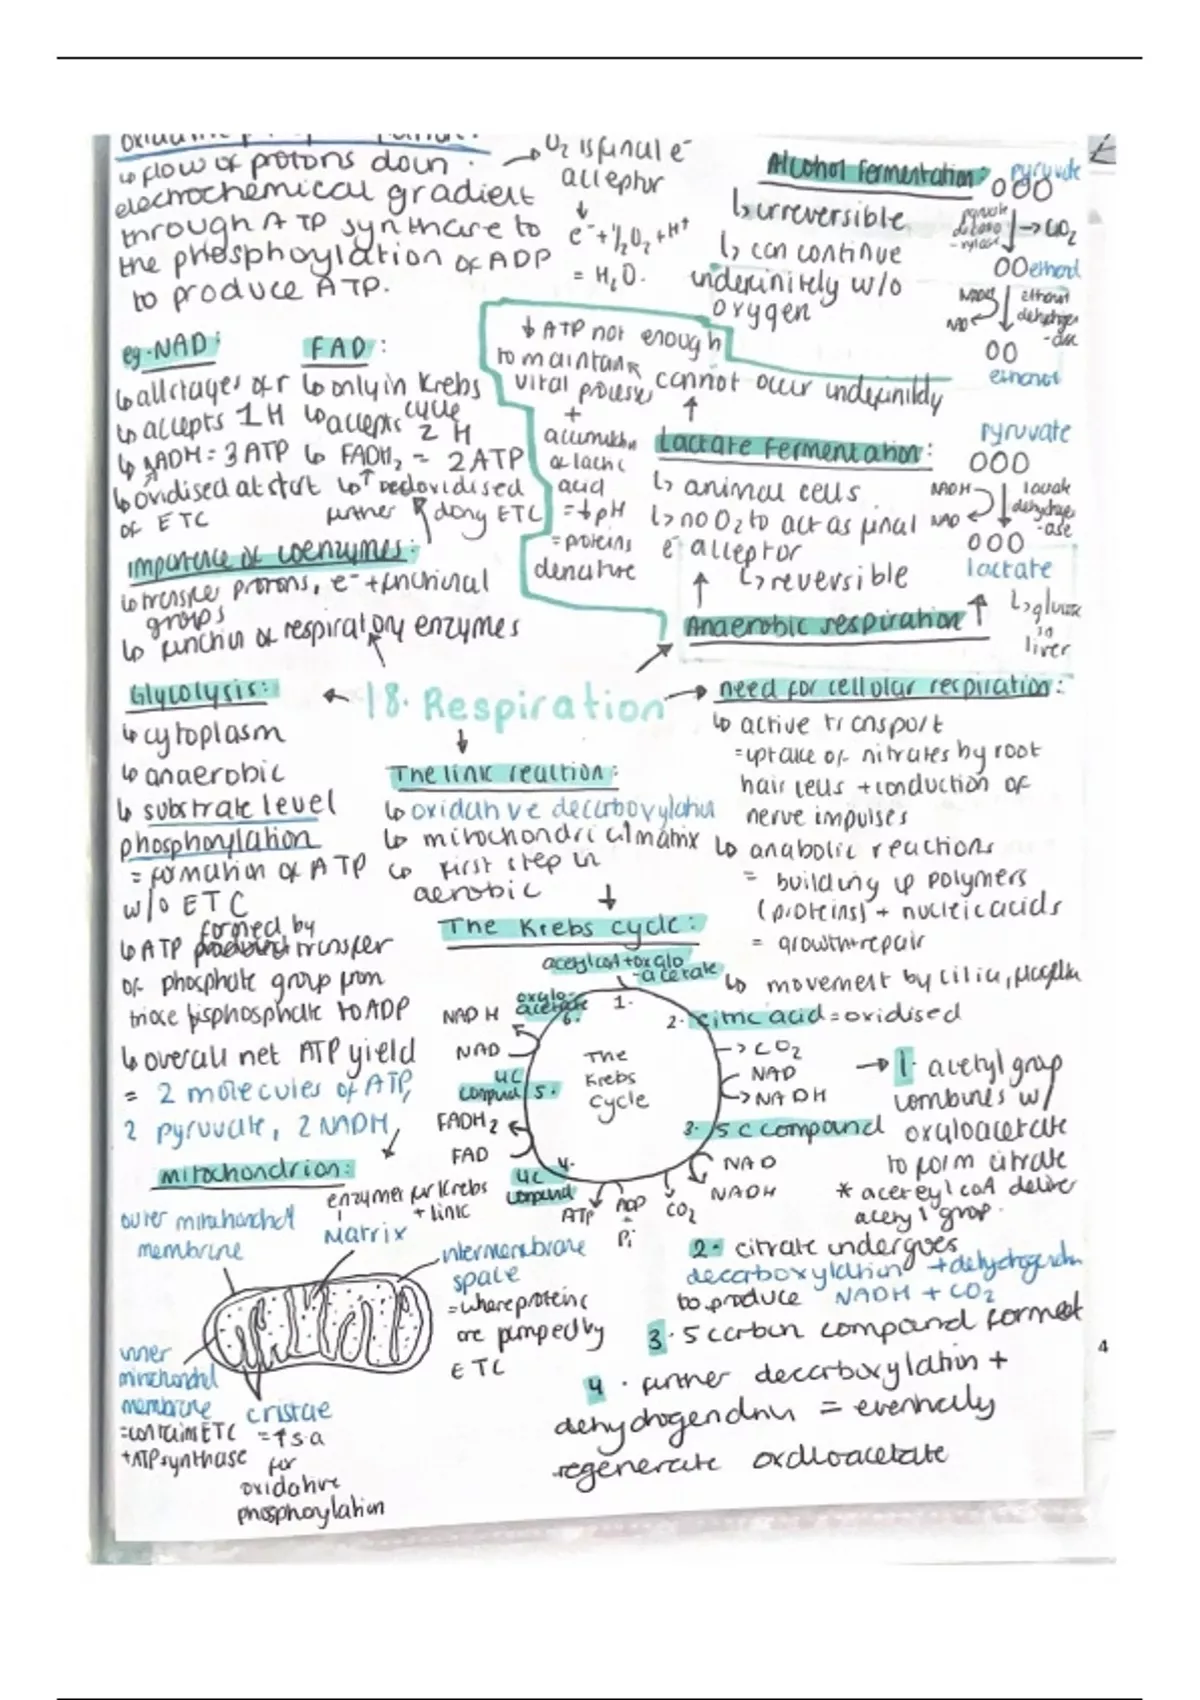 ↳ flow of protons down
electrochemical gradient
through ATP synthase to
the phosphorylation of ADP
to produce ATP.
→ O₂ is final e⁻
acceptor
↓
e⁻ + ½O₂ + H⁺
= H₂O.
Alcohol fermentation:
↳ irreversible
↳ can continue
indefinitely w/o
oxygen
pyruvate
000
pyruvate
→ CO₂
00 ethanal
NADH
NAD
ethanol
dehydrogen
-ase
00
ethanol
eg. NAD:
↳ all stages of r
↳ accepts 1 H
↳ NADH = 3 ATP
↳ oxidised at start
of ETC
FAD:
↳ only in Krebs
cycle
↳ accepts 2 H
↳ FADH₂ = 2 ATP
↳ oxidised
further along ETC
↓ ATP not enough
to maintain
vital processes
+
accumulation
of lactic
acid
= ↓ pH
= proteins
denature
cannot occur indefinitely
↑
Lactate fermentation:
↳ animal cells
↳ no O₂ to act as final
e⁻ acceptor
↳ reversible
pyruvate
000
NADH
NAD
lactate
dehydrogen
-ase
000
lactate
↳ glucose
in
liver
Anaerobic respiration
importance of coenzymes:
↳ transfer protons, e⁻ + functional
groups
↳ function of respiratory enzymes
18. Respiration
Glycolysis:
↳ cytoplasm
↳ anaerobic
↳ substrate level
phosphorylation
= formation of ATP
w/o ETC
formed by
↳ ATP transfer
of phosphate group from
triose bisphosphate to ADP
↳ overall net ATP yield
= 2 molecules of ATP,
2 pyruvate, 2 NADH
The link reaction:
↳ oxidative decarboxylation
↳ mitochondrial matrix
↳ first step in
aerobic
need for cellular respiration:
↳ active transport
= uptake of nitrates by root
hair cells + conduction of
nerve impulses
↳ anabolic reactions
= building up polymers
(proteins) + nucleic acids
= growth + repair
↳ movement by cilia, flagella
The Krebs cycle:
acetyl coA + oxalo
-acetate
1.
2. citric acid = oxidised
→ CO₂
NAD
→ NADH
3. 5 C compound
NAD
NADH
CO₂
ADP
+
Pi
ATP
4.
4C
compound
FAD
FADH₂
4C
compound 5.
NAD
NADH
oxalo-
acetate
6.
The
Krebs
cycle
→ 1. acetyl group
combines w/
oxaloacetate
to form citrate
* acetyl coA deliver
acetyl group.
2. citrate undergoes
decarboxylation + dehydrogenation
to produce NADH + CO₂
3. 5 carbon compound formed
4. further decarboxylation +
dehydrogenation = eventually
regenerate oxaloacetate
mitochondrion:
outer mitochondrial
membrane
enzymes for Krebs
+ link
matrix
intermembrane
space
= where proteins
are pumped by
ETC
inner
mitochondrial
membrane
= contains ETC
+ ATP synthase
cristae
= ↑ s.a
for
oxidative
phosphorylation
4